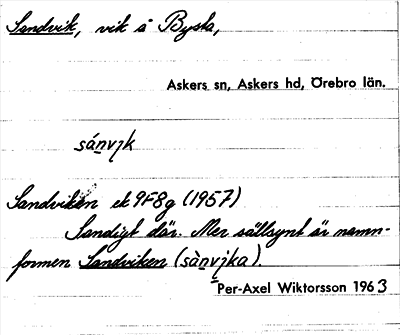 Sandvik, vik å Bysta,
Askers sn, Askers hd, Örebro län.
sánvįk
Sandviken ek 9F8g (1957)
Sandigt där. Mer sällsynt är namn-
formen Sandviken (sànvįka).
Per-Axel Wiktorsson 1963